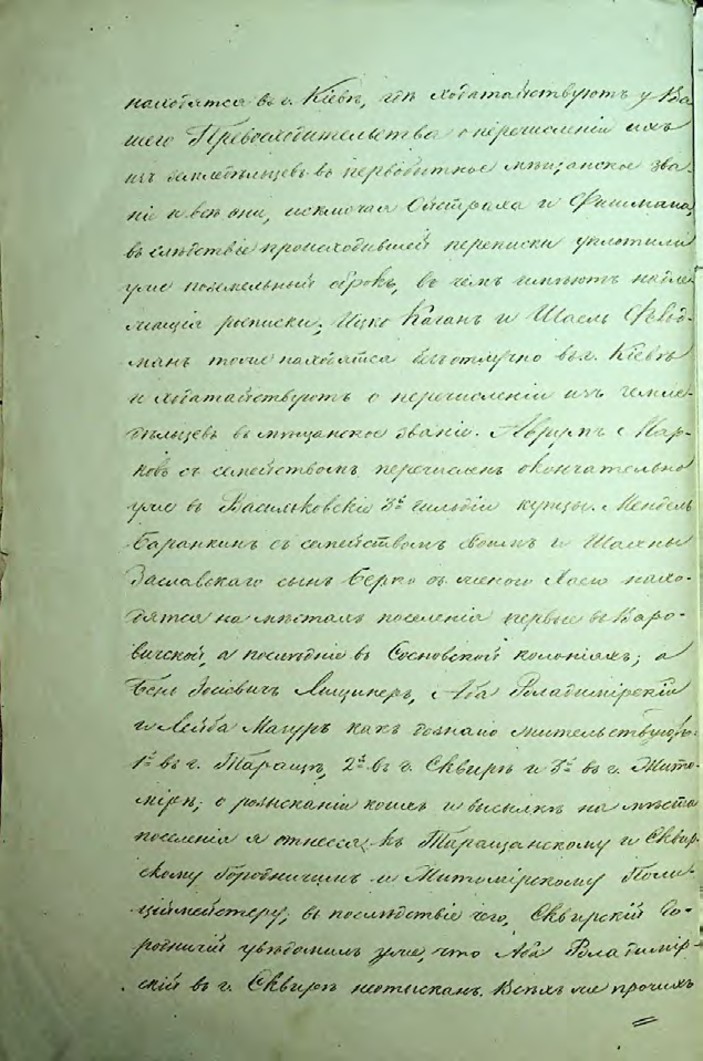 находятся въ г. Кіевѣ, гдѣ ходатайствуютъ у Ва
шего Превосходительства о перечисленіи ихъ
изъ земледѣльцевъ въ первобытное мѣщанское зва-
ніе и всѣ они, исключая Ойстраха и Фишмана,
въ слѣдствіе происходившей переписки уплотили
уже поземельный оброкъ, въ чемъ имѣютъ надле
жащія росписки; Ицко Каганъ и Шаель Фельд-
манъ тоже находятся безотлучно въ г. Кіевѣ
и ходатайствуютъ о перечисленіи изъ земле-
дѣльцевъ въ мѣщанское званіе. Аврумъ Мар-
ковъ съ семействомъ перечисленъ окончательно
уже въ Васильковскіе 3й гильдіи купцы. Мендель
Баранкинъ съ семействомъ и Шаены
Заславскаго сынъ Берко съ женою Хаею нахо-
дятся на мѣстахъ поселенія первые въ Варо-
вичской, а послѣдніе въ Сосновской колоніяхъ; а
Бень Іосіовичъ Лищинеръ, Аба Владимірскій
и Лейба Мазуръ какъ дознано жительствуютъ
1й въ г. Таращѣ, 2й въ г. Сквирѣ и 3й въ г. Жито-
мірѣ; о розысканіи коихъ и высылкѣ на мѣста
поселенія я отнесся къ Таращанскому и Сквир
скому Городничимъ и Житомірскому Поли
ціймейстеру; въ послѣдствіе чего, Сквирскій Го-
родничій увѣдомилъ уже, что Аба Владимір-
скій въ г. Сквирѣ неотысканъ. Всѣхъ же прочихъ